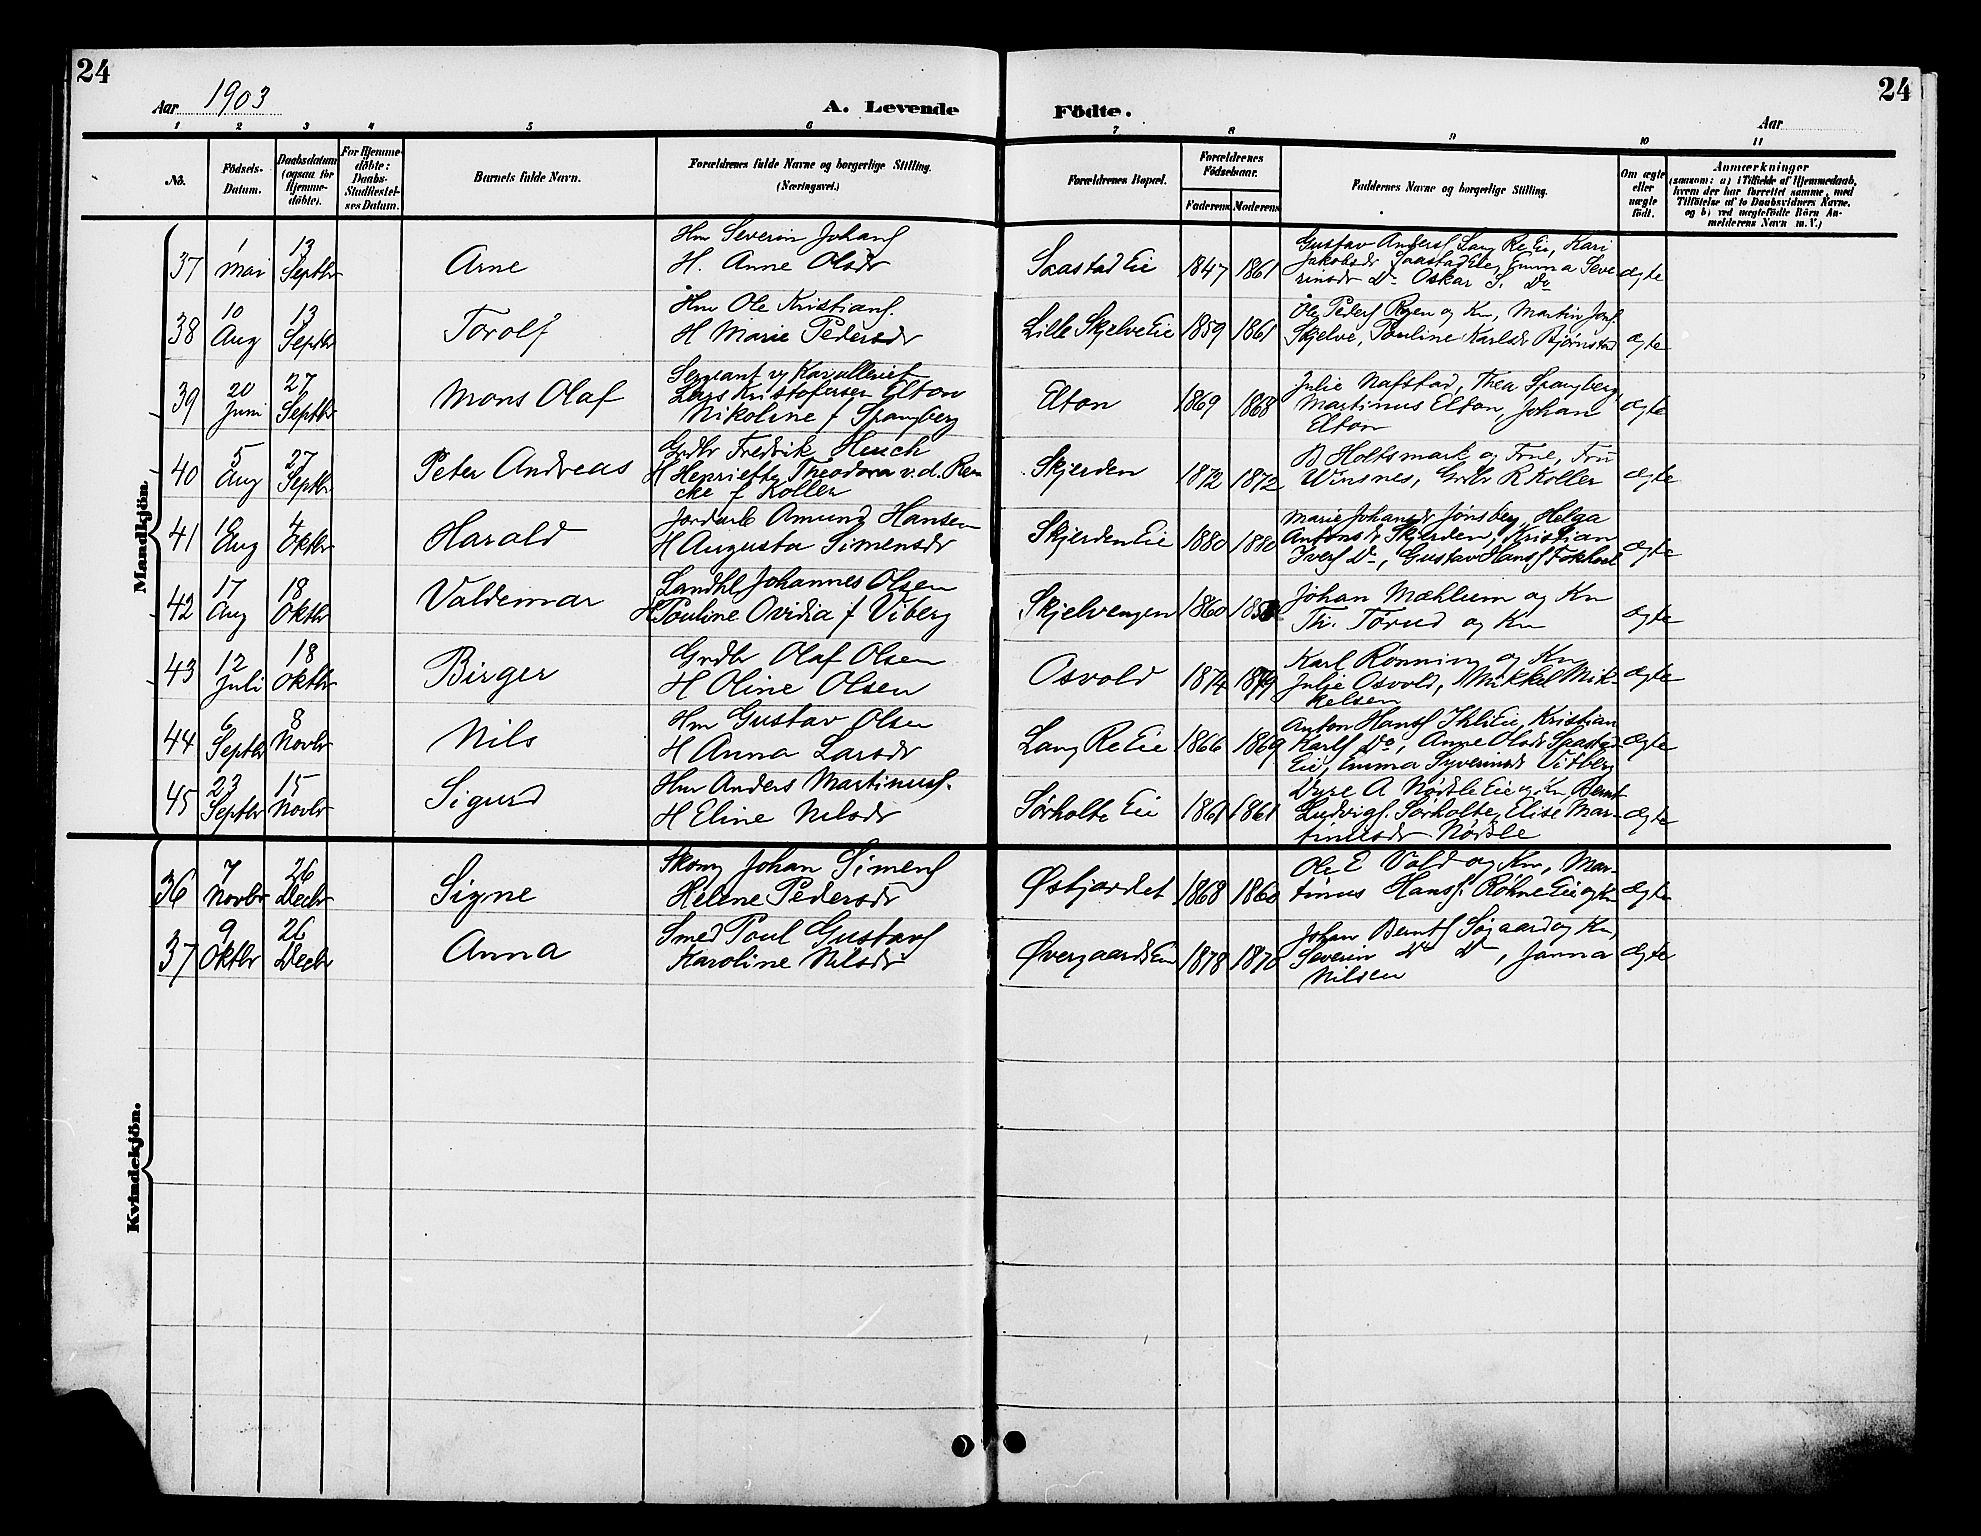 24
Aar 1903
A. Levende
Födte.
Aar
24
1 2 3 4 5 6 7 8 9 10 11
No.
Födsels-
Datum.
Daabsdatum
(ogsaa for
Hjemme-
döbte).
For Hjemme-
döbte:
Daabs-
Stadfæstel-
ses Datum.
Barnets fulde Navn.
Forældrenes fulde Navne og borgerlige Stilling.
(Næringsvei.)
Forældrenes Bopæl.
Forældrenes
Födselsaar.
Faderens
Moderens
Faddernes Navne og borgerlige Stilling.
Om ægte
eller
uægte
födt.
Anmærkninger
(saasom: a) i Tilfælde af Hjemmedaab,
hvem der har forrettet samme, med
Tilföielse af to Daabsvidners Navne,
og b) ved uægtefödte Börn An-
melderens Navn m. V.)
Mandkjön.
37 1 Mai 13 Septbr Arne
Hm Severin Johans
H. Anne Olsdr
Saastad Eie 1847 1861
Gustav Anders Lang Re Eie, Kari
Jakobsdr Saastad Eie, Emma Seve
rinsdr Do Oskar S. Do
ægte
38 10 Aug 13 Septbr Torolf
Hm Ole Kristians.
H Marie Pedersdr
Lille Skjelve Eie 1859 1861
Ole Peders Ryen og Kn, Martin Joh.
Skjelve, Pauline Karlsdr Bjørnstad
ægte
39 20 Juni 27 Septbr Mons Olaf
Sergeant v Kavalleriet
Lars Kristofersen Elton
Nikoline f Spangberg
Elton 1869 1868
Julie Nafstad, Thea Spangberg,
Martinus Elton, Johan
Elton
ægte
40 5 Aug 27 Septbr Peter Andreas
Grdbr Fredrik Heuch
H Henriette Theodora v. d. Ren
cke f Koller
Skjerden 1872 1872
B Holtsmark og Frue, Fru
Winsnes, Grdbr R Koller
ægte
41 Aug 4 Oktbr Harald
Jordarb Amund Hansen
H Augusta Simensdr
Skjerden Eie 1880 1880
Marie Johansdr Jønsberg, Helga
Antonsdr Skjerden, Kristian
Ivers Do, Gustav Hans Fokhol
ægte
42 17 Aug 18 Oktbr Valdemar
Landhl Johannes Olsen
H Pouline Ovidia f Viberg
Skjelvengen 1860
Johan Mæhlum og Kn
Th. Torud og Kn
ægte
43 12 Juli 18 Oktbr Birger
Grdbr Olaf Olsen
H Oline Olsen
Osvold 1874 1879
Karl Rønning og Kn
Julie Osvold, Mikkel Mik-
kelsen
ægte
44 6 Septbr 8 Novbr Nils
Hm Gustav Olsen
H Anna Larsdr
Lang Re Eie 1866 1869
Anton Hans Ihle Eie, Kristian
Karls Do, Anne Olsdr Saastad
Eie, Emma Syverinsdr Vitberg
ægte
45 23 Septbr 15 Novbr Sigurd
Hm Anders Martinus.
H Eline Nilsdr
Sørholte Eie 1861 1861
Dyre A Nørsle Eie og Kn, Bernt
Ludvigs. Sørholte, Elise Mar-
tinusdr Nørsle
ægte
Kvindekjön.
36 7 Novbr 26 Decbr Signe
Skom Johan Simens
Helene Pedersdr
Østjordet 1868 1860
Ole E Vold og Kn, Mar-
tinus Hans. Røhne Eie og Kn
ægte
37 9 Oktbr 26 Decbr Anna
Smed Poul Gustavs
Karoline Nilsdr
Øvergaards Eie 1878 1870
Johan Bernts Søgaard og Kn,
Severin Do Do, Janna
Nilsen
ægte